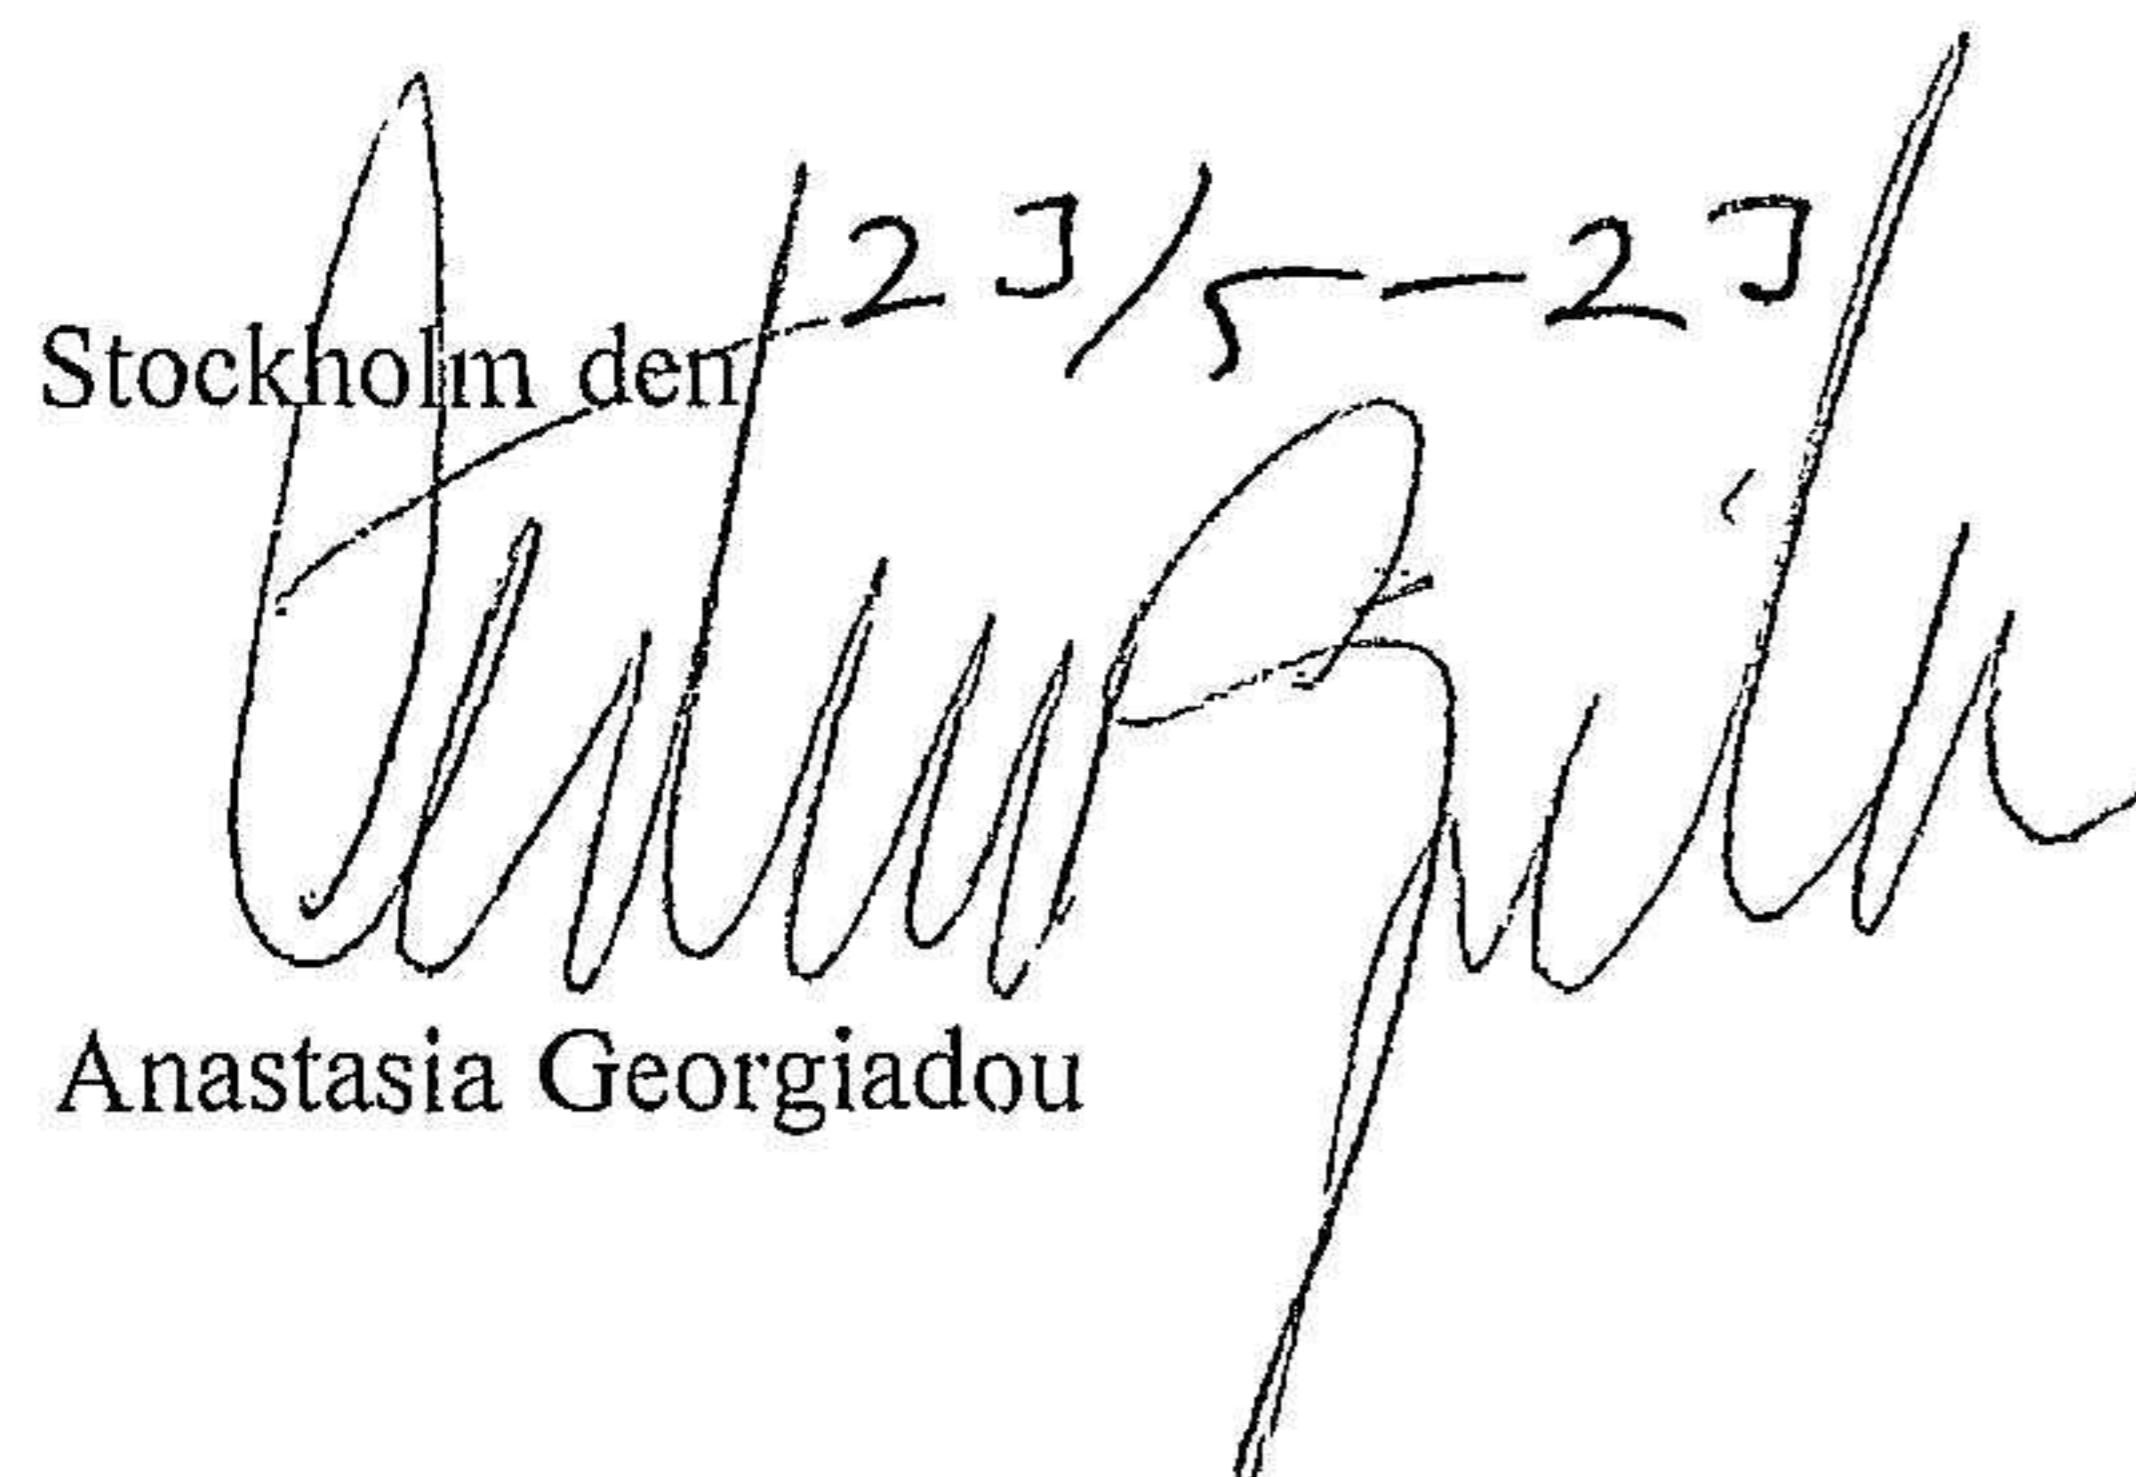 Stockholm den 23/5-23
Anastasia Georgiadou